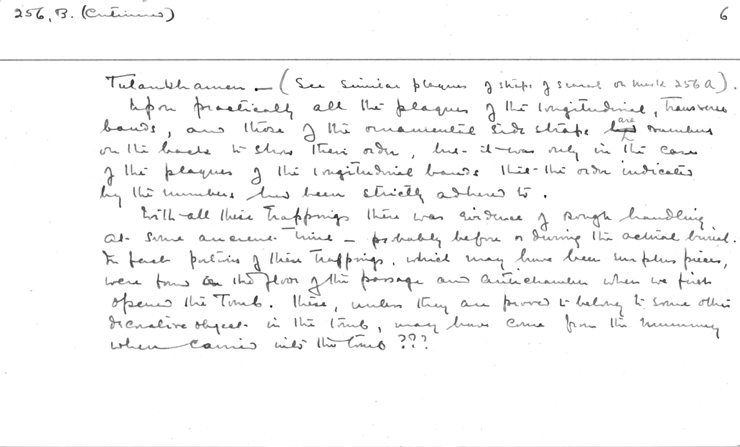 256, B. (Continued) 6
Tutankhamen. — (See similar plaques of straps of scarab on mask 256 a).
Upon practically all the plaques of the longitudinal, transverse
bands, and those of the ornamental side straps are numbers
on the backs to show their order, but it was only in the case
of the plaques of the longitudinal bands that the order indicated
by the numbers had been strictly adhered to.
With all these trappings there was evidence of rough handling
at some ancient time — probably before or during the actual burial.
In fact portions of these trappings, which may have been surplus pieces,
were found on the floor of the passage and antechamber when we first
opened the Tomb. These, unless they are proved to belong to some other
decorative object in the tomb, may have come from the mummy
when carried into the tomb ???